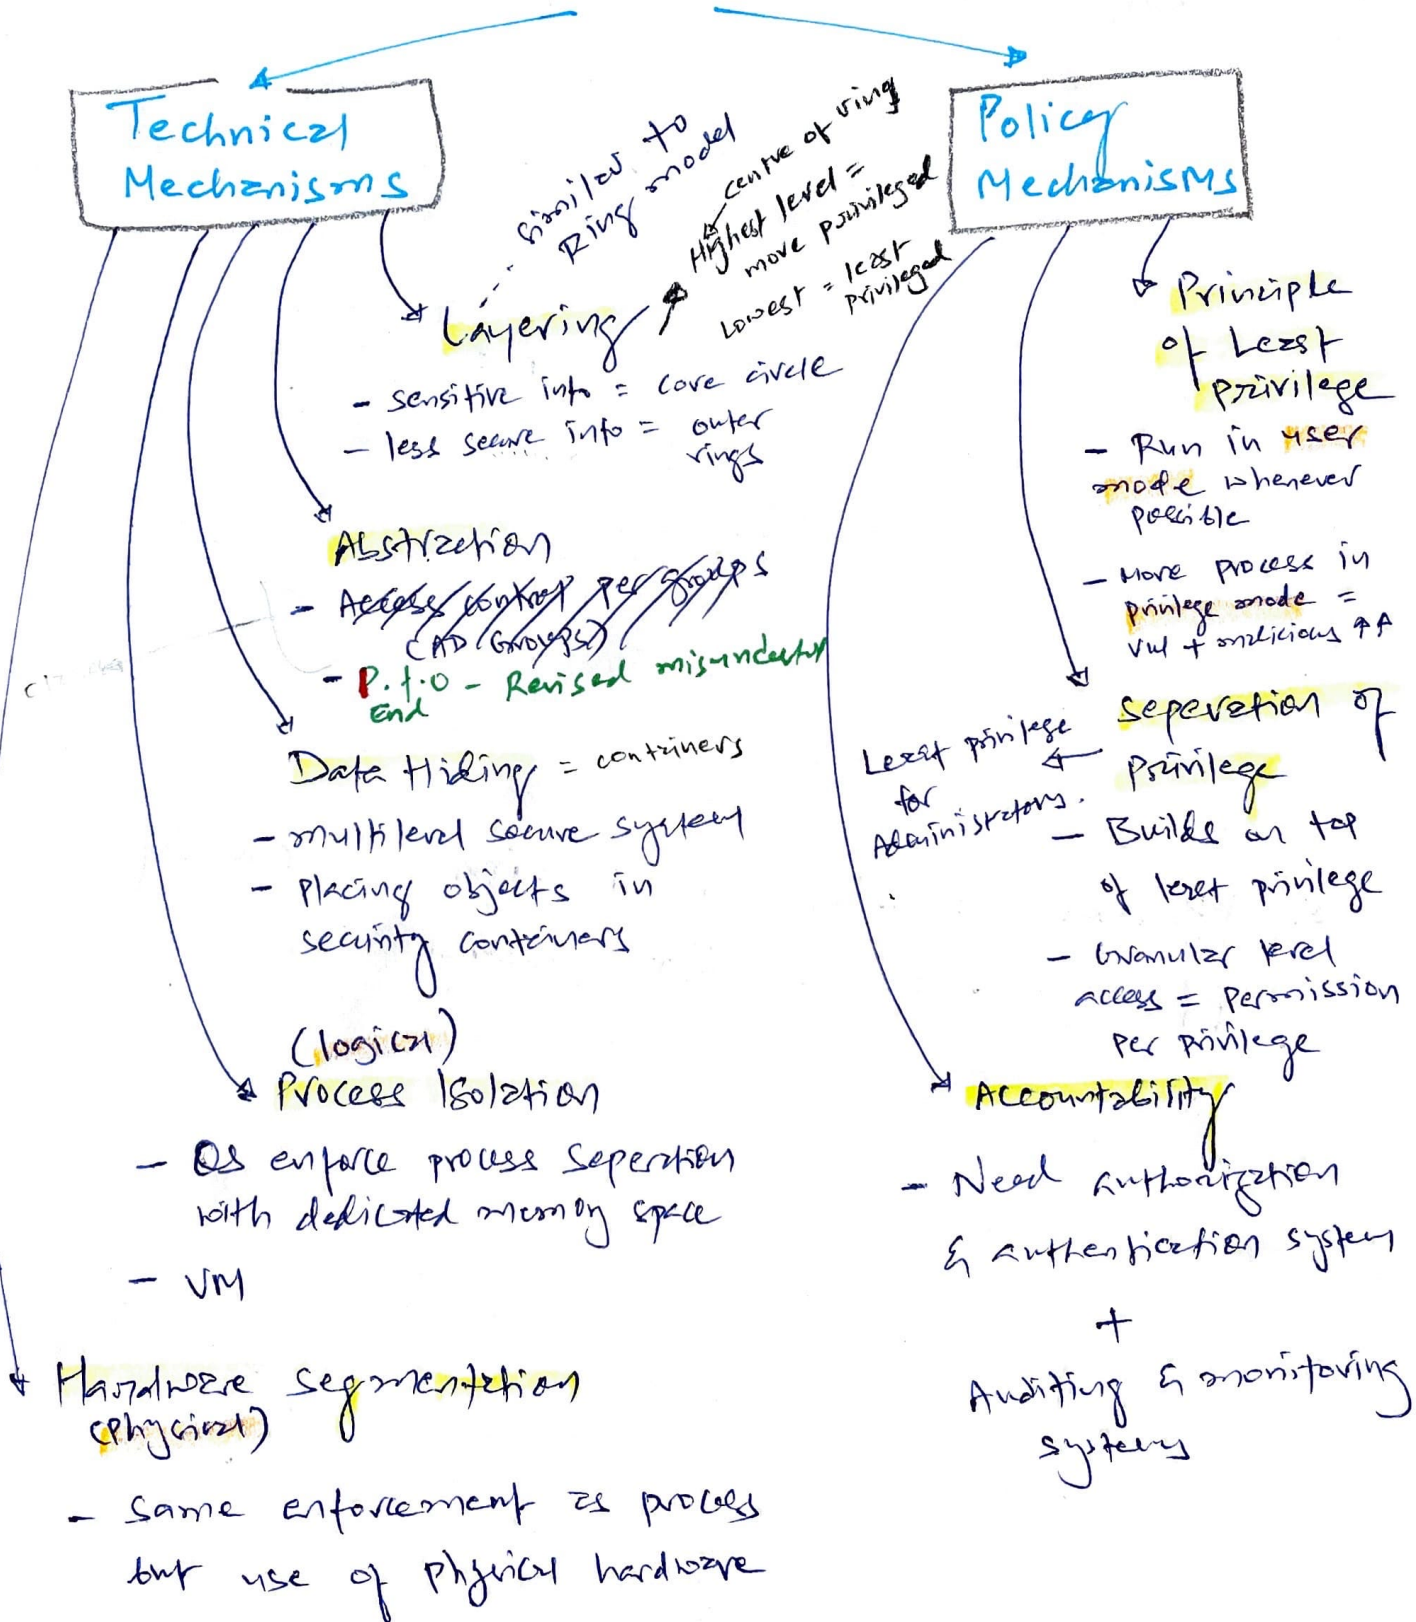 Technical
Mechanisms
similar to
Ring model
centre of ring
Highest level =
more privileged
Lowest = least
privileged
Layering
- sensitive info = core circle
- less secure info = outer
rings
Abstraction
- Access control per groups
(AD Groups)
- P.t.O - Revised misunderstand
End
Data Hiding = containers
- multilevel secure system
- Placing objects in
security containers
(logical)
Process Isolation
- OS enforce process seperation
with dedicated memory space
- VM
Hardware segmentation
(Physical)
- Same enforcement as process
but use of physical hardware
Policy
Mechanisms
Principle
of Least
privilege
- Run in user
mode whenever
possible
- More process in
privilege mode =
vul + malicious ↑↑
Seperation of
Privilege
Least privilege
for
Administrators.
- Builds on top
of least privilege
- Granular level
access = Permission
per privilege
Accountability
- Need authorization
& authentication system
+
Auditing & monitoring
systems